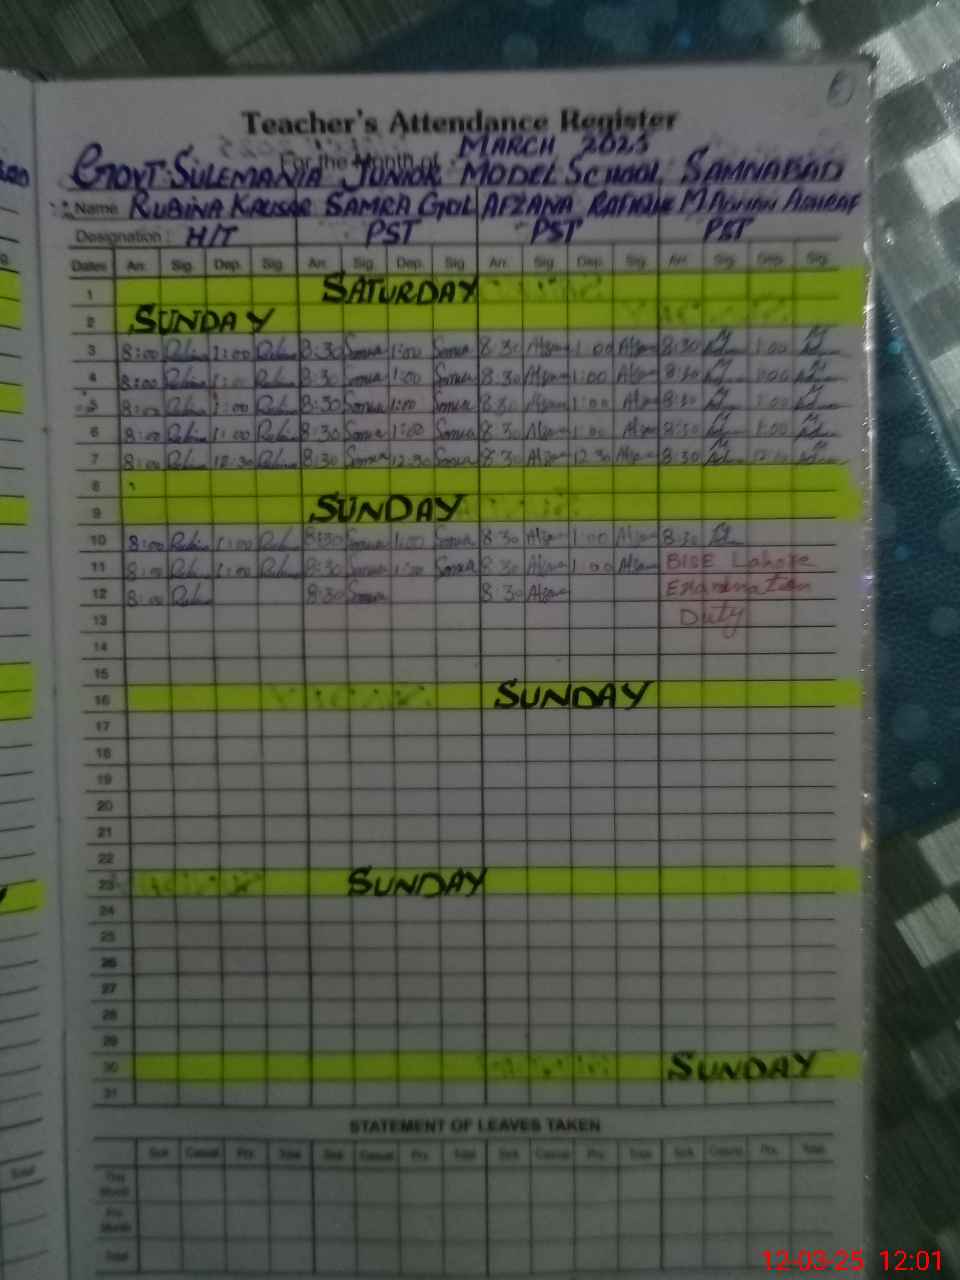 Teacher's Attendance Register
For the Month of MARCH 2025
GOVT SULEMANIA JUNIOR MODEL SCHOOL SAMNABAD
Name RUBINA KAUSAR SAMRA GUL AFZANA M ADNAN ASHRAF
Designation : H/T PST PST PST
Dates Arr. Sig. Dep. Sig. Arr. Sig. Dep. Sig. Arr. Sig. Dep. Sig. Arr. Sig. Dep. Sig.
1 SATURDAY
2 SUNDAY
3 8:00 1:00 8:30 Samra 1:00 Samra 8:30 1:00 8:30 1:00
4 8:00 1:00 8:30 Samra 1:00 Samra 8:30 1:00 8:30 1:00
5 8:00 1:00 8:30 Samra 1:00 Samra 8:30 1:00 8:30 1:00
6 8:00 1:00 8:30 Samra 1:00 Samra 8:30 1:00 8:30 1:00
7 8:00 12:30 8:30 Samra 12:30 Samra 8:30 12:30 8:30
8
9 SUNDAY
10 8:00 1:00 8:30 Samra 1:00 Samra 8:30 1:00 8:30
11 8:00 1:00 8:30 Samra 1:00 Samra 8:30 1:00 BISE Lahore
12 8:00 8:30 Samra 8:30 Examination
13 Duty
14
15
16 SUNDAY
17
18
19
20
21
22
23 SUNDAY
24
25
26
27
28
29
30 SUNDAY
31
STATEMENT OF LEAVES TAKEN
Sick Casual Prv. Total Sick Casual Prv. Total Sick Casual Prv. Total Sick Casual Prv. Total
This Month
Pre. Month
Total
12-03-25 12:01